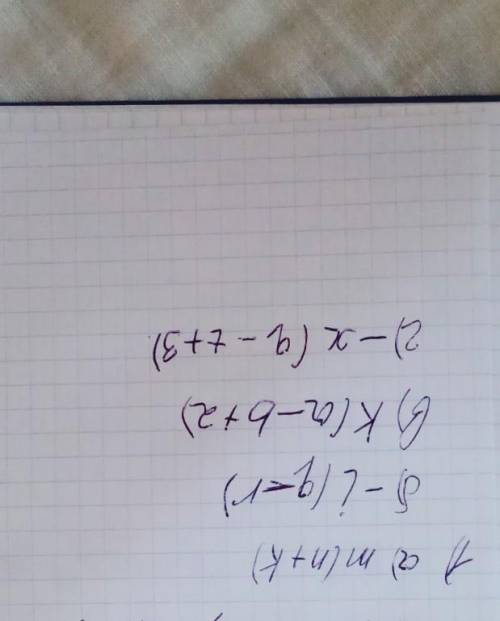 1) а) m(n+k)
б) -i(q-r)
в) k(a-b+2)
г) -x(q-t+3)